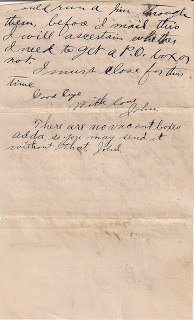 will run a line through
them, befoe I mail this
I will ascertain whether
I need to get a P.O. box or
not.
I must close for this
time.
Good bye
With love
John
There are no vacant boxes
adda, so you may send it
without that. John.